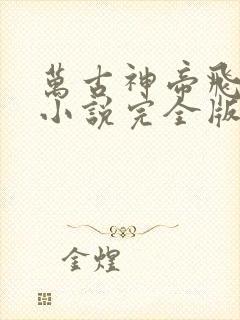 萬古神帝飛
小說完全版
金煌